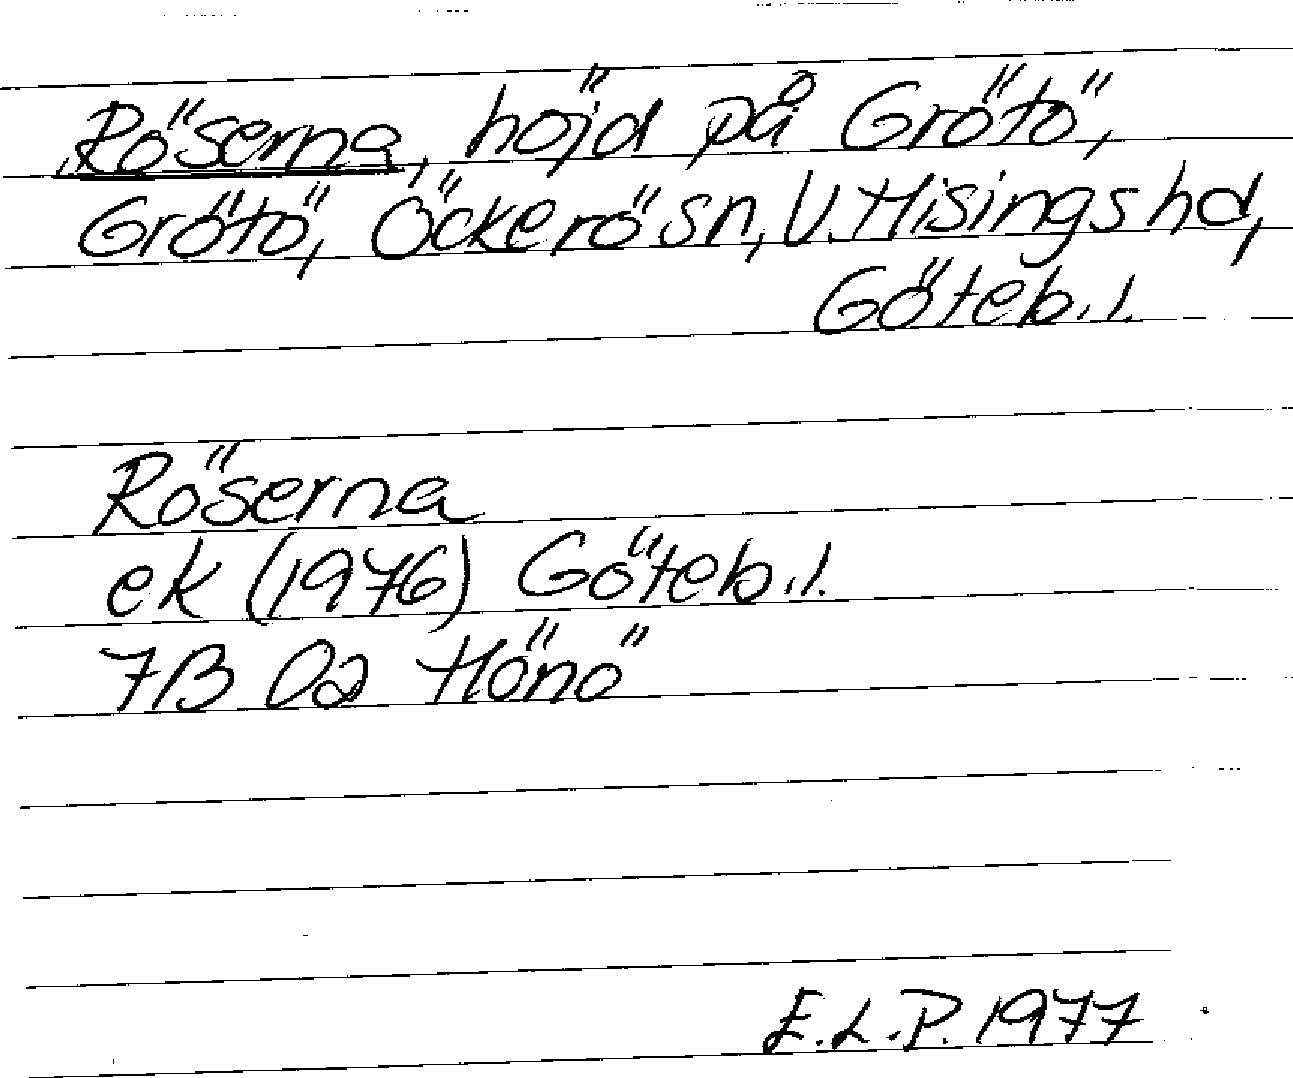 Röserna, höjd på Grötö,
Grötö, Öckerö sn, V. Hisings hd,
Göteb. l.
Röserna
ek (1976) Göteb. l.
7B 0a Hönö
E.L.P. 1977